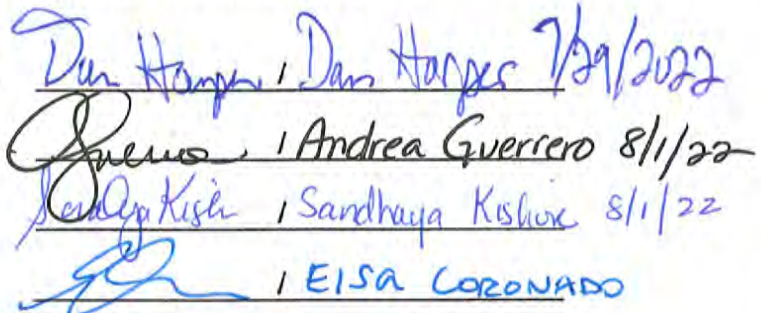 Dan Harper / Dan Harper 7/29/2022
Guerrero / Andrea Guerrero 8/1/22
Sandhaya Kish / Sandhaya Kishore 8/1/22
/ Elsa CORONADO